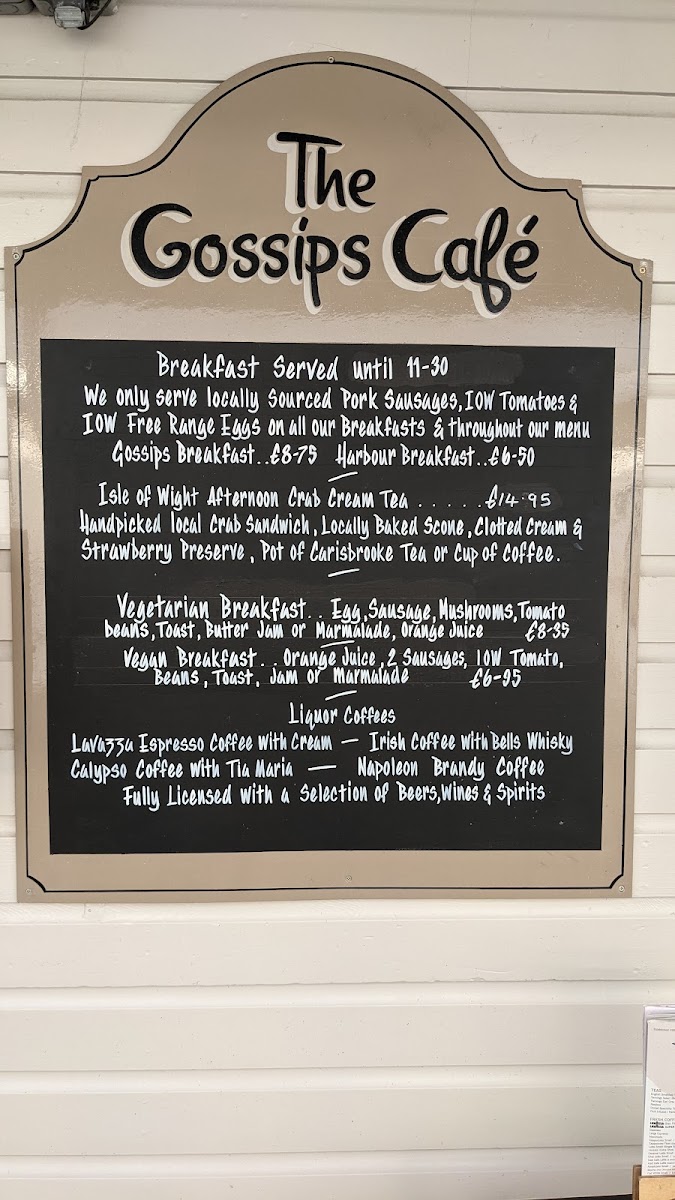 The
Gossips Café
Breakfast Served until 11-30
We only serve locally sourced Pork Sausages, IOW Tomatoes &
IOW Free Range Eggs on all our Breakfasts & throughout our menu
Gossips Breakfast..£8-75 Harbour Breakfast..£6-50
Isle of Wight Afternoon Crab Cream Tea ......£14.95
Handpicked local Crab Sandwich, Locally Baked Scone, Clotted Cream &
Strawberry Preserve, Pot of Carisbrooke Tea or Cup of Coffee.
Vegetarian Breakfast.. Egg, Sausage, Mushrooms, Tomato
beans, Toast, Butter Jam or Marmalade, Orange Juice £8-35
Vegan Breakfast.. Orange Juice, 2 Sausages, IOW Tomato,
Beans, Toast, Jam or Marmalade £6-95
Liquor Coffees
Lavazza Espresso Coffee with Cream — Irish Coffee with Bells Whisky
Calypso Coffee with Tia Maria — Napoleon Brandy Coffee
Fully Licensed with a Selection of Beers, Wines & Spirits